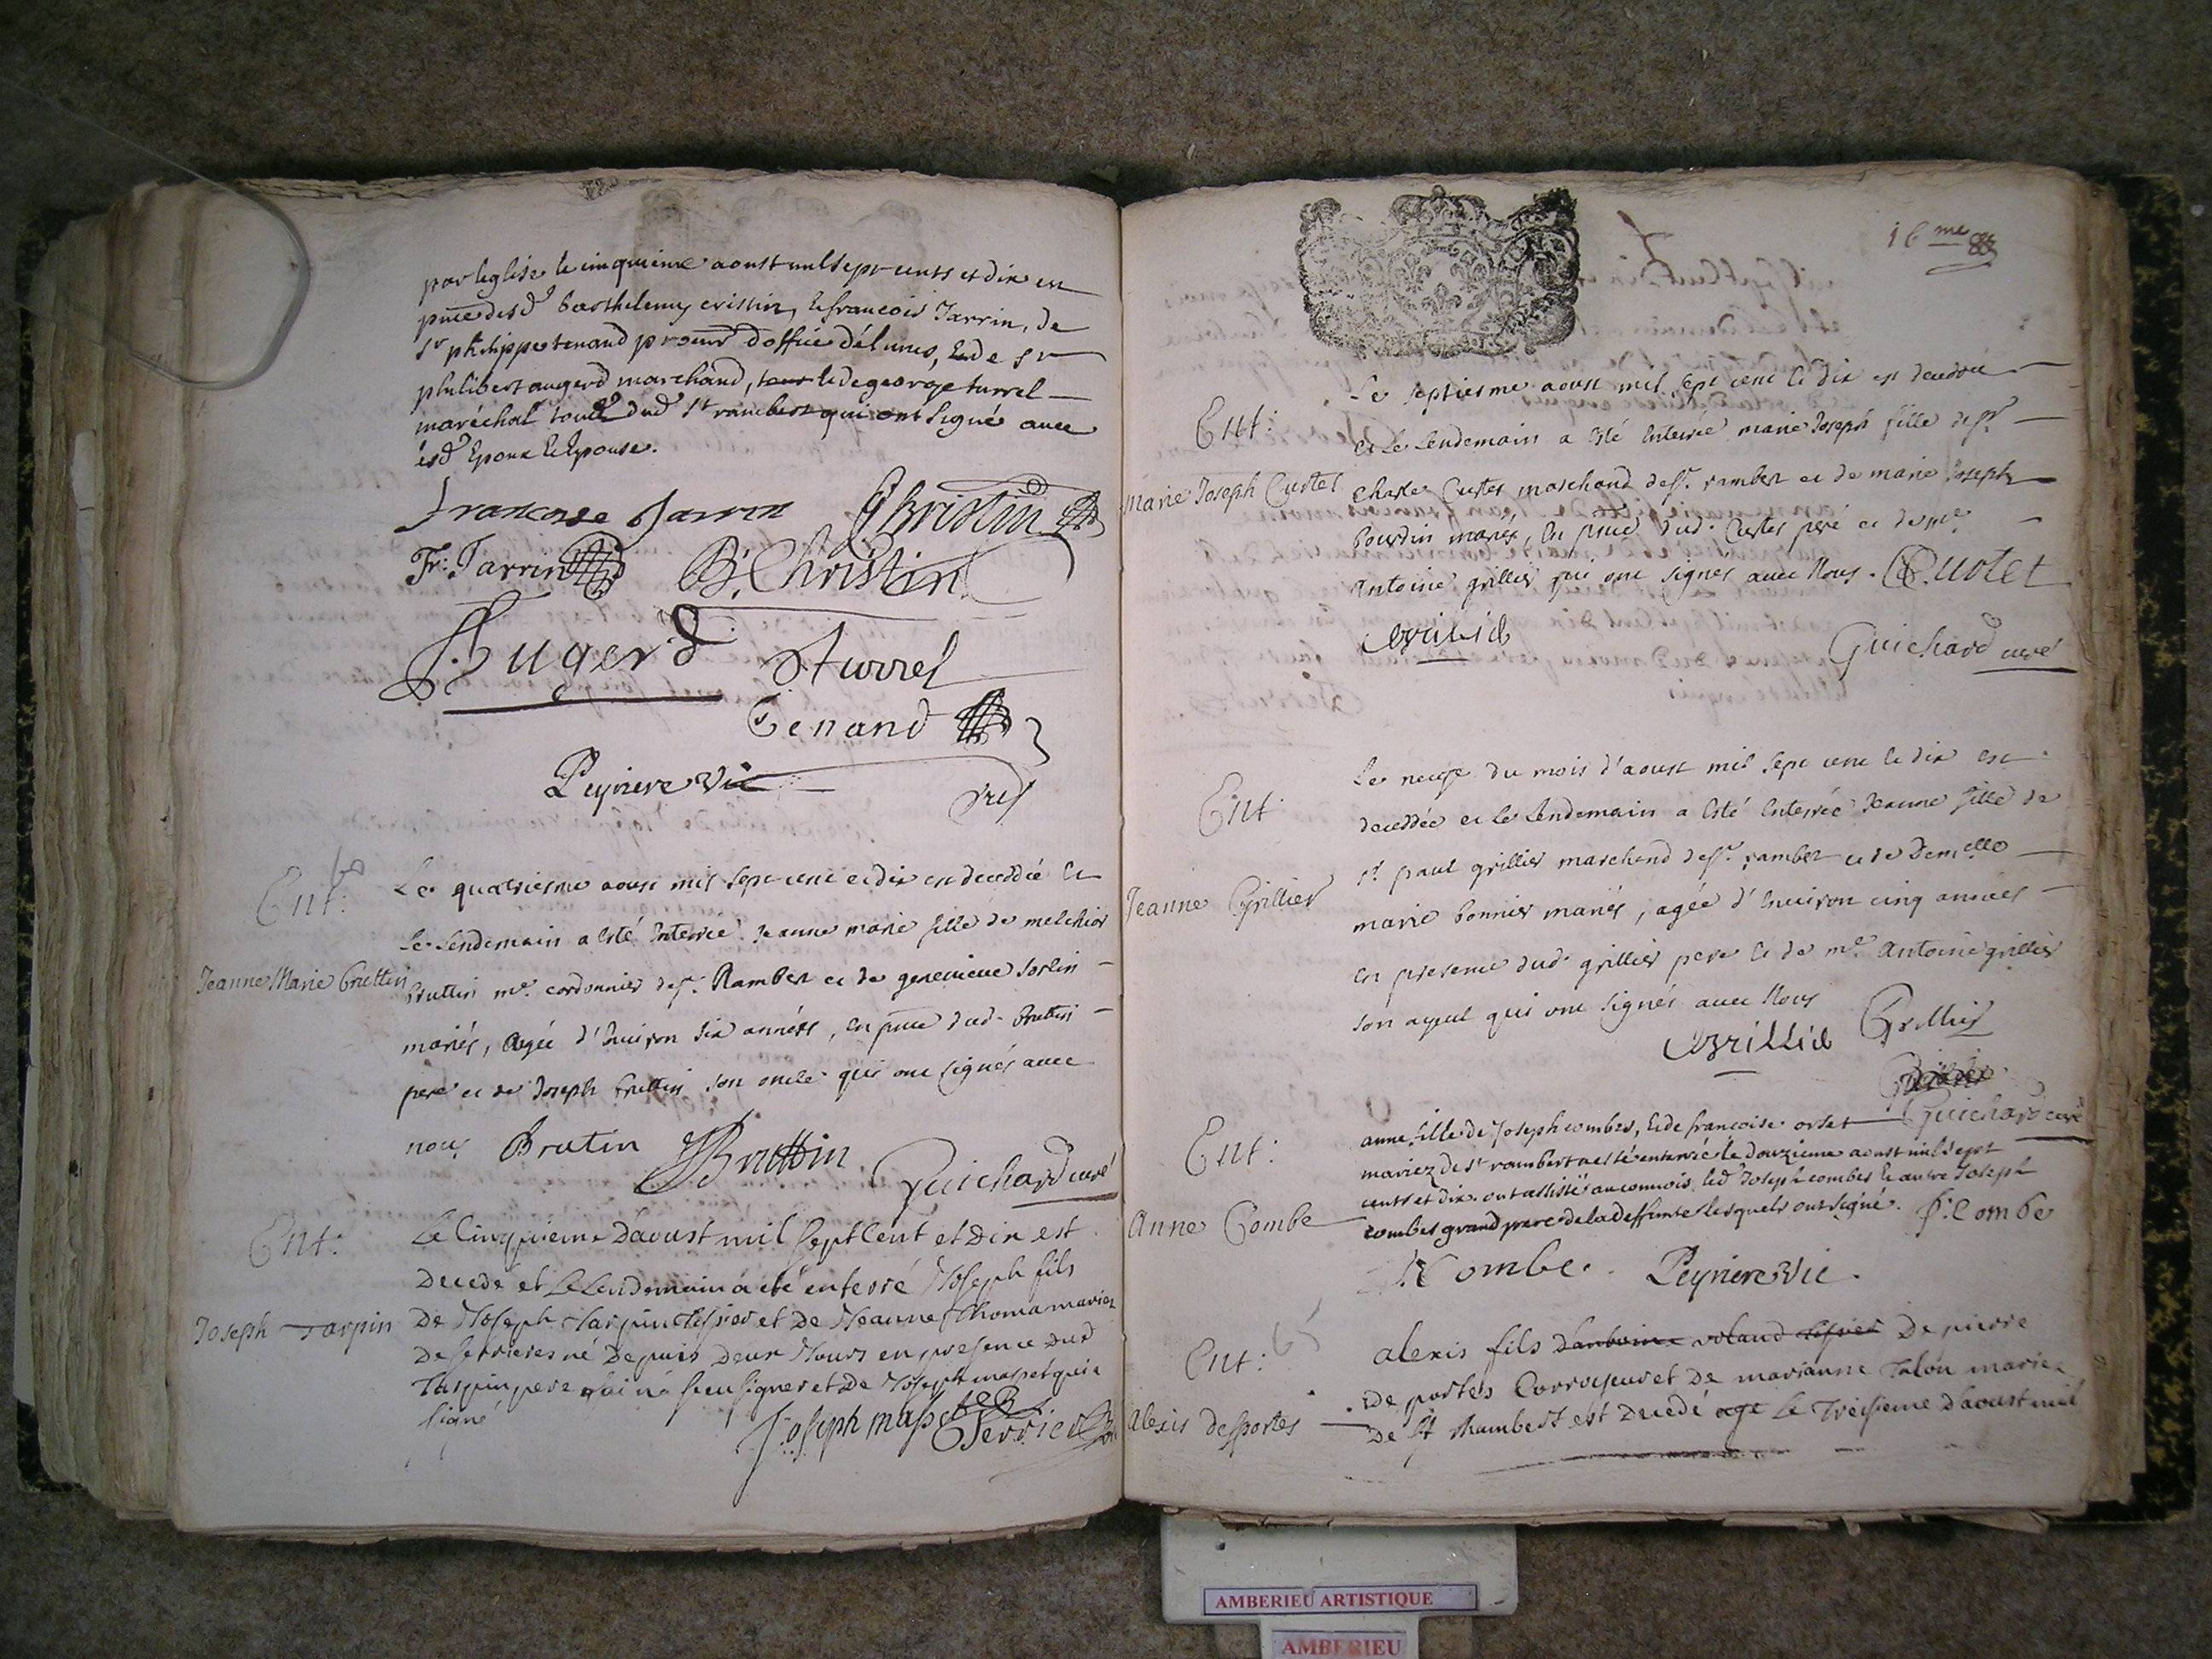 par leglise le cinquieme aoust mil sept cents et dix en
pnce desd barthelemy cristin, & francois Jarrin, de
sr philippe tenand procur d'office délimes, & de sr
philibert augerd marchand, & de george turrel
maréchal tous dud st rambert qui ont signé avec
lesd Epoux & Epouse.
francoise Jarrin Christin
Fr: Jarrin B. Christin
Augerd turrel
Tenand
Peyriere vic
Ent:
Le quatriesme aoust mil sept cent et dix est deceddée &
le lendemain a esté enterrée Jeanne marie fille de melchior
Jeanne Marie Bruttin
bruttin me. cordonnier de st. Rambert et de genevieve sorlin
mariés, agée d'environ six années, en pnce dud. bruttin
pere et de Joseph bruttin son oncle qui ont signés avec
nous Brutin JBruttin
Guichard curé
Ent:
Le Cinquieme Daoust mil sept Cent et Dix est
Decede et Le Lendemain a été enterré Joseph fils
Joseph Tarpin
De Joseph Tarpin Tessier et de Jeanne Thoma mariez
De serrieres né Depuis Deux Jours en presence Dud
Tarpin pere qui n'a sceu signer et de Joseph masset qui a
signé
Joseph masset Perrier
16me
Ent:
Le septiesme aoust mil sept cent & dix est deceddée
et le lendemain a esté enterrée marie Joseph fille de sr
Marie Joseph Custet
Charle Custet marchand de st. rambert et de marie Joseph
bourdin mariés, en pnce dud. Custet peré et de me
Antoine grillier qui ont signés avec nous. Custet
Grillier
Guichard curé
Ent:
Le neufe du mois d'aoust mil sept cent & dix est
deceddée et le lendemain a esté enterrée Jeanne fille de
Jeanne Grillier
sr. paul grillier marchand de st. rambert et de Demelle
marie bonnier mariés, agée d'environ cinq années
en presence dud. grillier pere & de me. Antoine grillier
son ayeul qui ont signés avec nous
Grillier Grillier
Guichard curé
Ent:
anne fille de Joseph combes, & de francoise orset
mariez de st rambert a esté enterrée le douzieme aoust mil sept
cents et dix. ont assisté au convois led Joseph combes & autre Joseph
Anne Combe
combes grand pere de la deffunte lesquels ont signé. J: Combe
J Combe. Peyriere vic.
Ent:
alexis fils d'anthoine volaud tessier De pierre
De portes Corroyeur et De marianne Talon mariez
Alexis desportes
De St Rambert est Decedé agé Le Treisieme d'aoust mil
AMBERIEU ARTISTIQUE
AMBERIEU